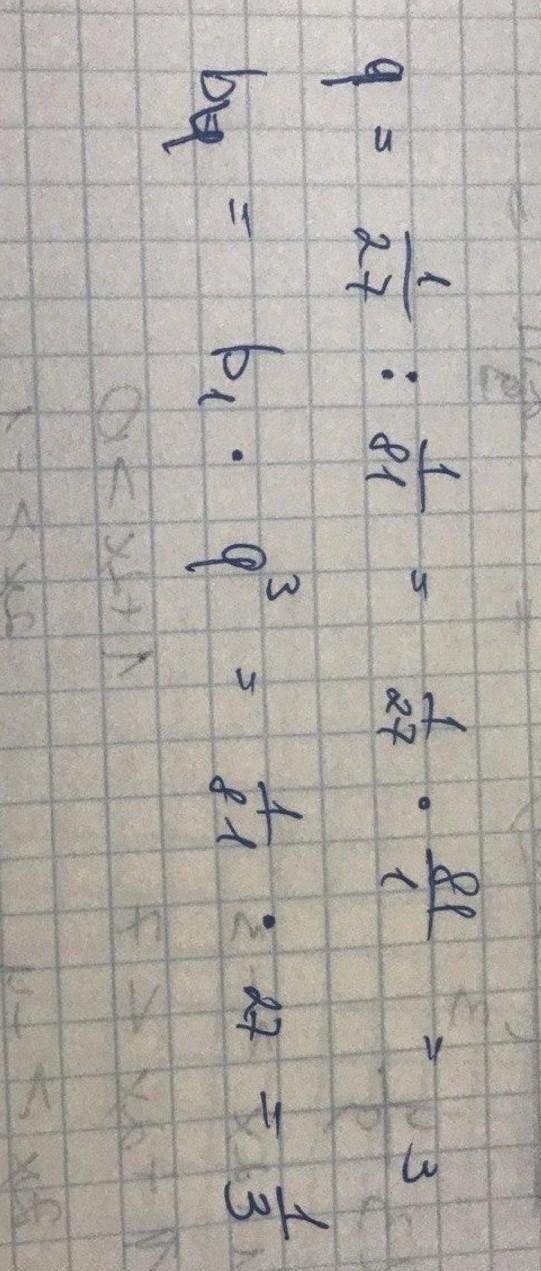 q = 1/27 : 1/81 = 1/27 · 81/1 = 3
b₄ = b₁ · q³ = 1/81 · 27 = 1/3